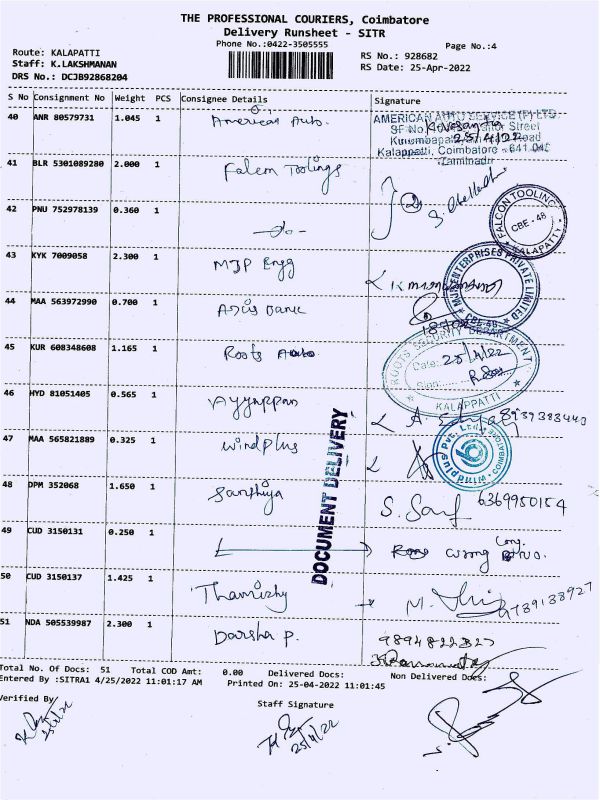 THE PROFESSIONAL COURIERS, Coimbatore
Delivery Runsheet - SITR
Phone No.:0422-3505555
Page No.:4
Route: KALAPATTI
RS No.: 928682
Staff: K.LAKSHMANAN
RS Date: 25-Apr-2022
DRS No.: DCJB92868204
S No Consignment No Weight PCS Consignee Details Signature
40 ANR 80579731 1.045 1 American Auto.
AMERICAN AUTO SERVICE (P) LTD
SF No Street
25/4/22
Kalappatti, Coimbatore - 641 048
Tamilnadu
41 BLR 5301089280 2.000 1 Falcm Toolings
FALCON TOOLING
CBE - 48
KALAPATTY
42 PNU 752978139 0.360 1 -do-
43 KYK 7009058 2.300 1 MJP Engg
ENTERPRISES PRIVATE LIMITED
CBE-48
44 MAA 563972990 0.700 1 Axis Bank
45 KUR 608348608 1.165 1 Roots Auto
ROOTS SECURITY DEPARTMENT
Date: 25/4/22
Sign:
KALAPPATTI
46 HYD 81051405 0.565 1 Ayyappan
8939383440
47 MAA 565821889 0.325 1 Windplus
Windplus Pvt. Ltd. COIMBATORE
48 DPM 352068 1.650 1 Santhiya
6369950154
DOCUMENT DELIVERY
49 CUD 3150131 0.250 1 wrong
50 CUD 3150137 1.425 1 Thamizhy
9789138927
51 NDA 505539987 2.300 1 Darsha P.
9894822327
Total No. Of Docs: 51 Total COD Amt: 0.00 Delivered Docs: Non Delivered Docs:
Entered By :SITRA1 4/25/2022 11:01:17 AM Printed On: 25-04-2022 11:01:45
Verified By
Staff Signature
25/4/22
25/4/22